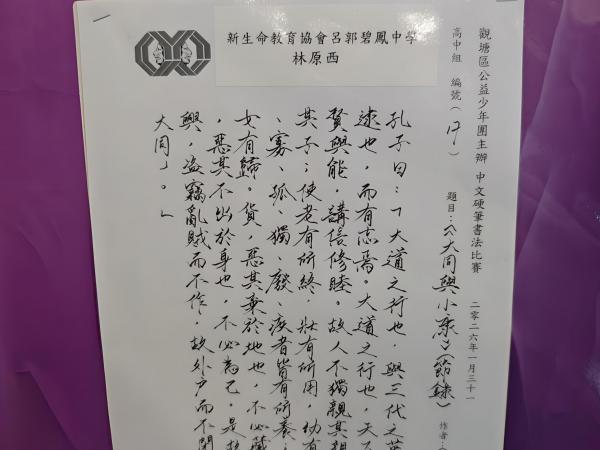 新生命教育協會呂郭碧鳳中學
林原西
觀塘區公益少年團主辦 中文硬筆書法比賽 二零二六年一月三十一
高中組 編號(17) 題目:《大同與小康》(節錄) 作者:
孔子曰:「大道之行也,與三代之英
逮也,而有志焉。大道之行也,天下
賢與能,講信修睦。故人不獨親其親
其子;使老有所終,壯有所用,幼有
、寡、孤、獨、廢、疾者皆有所養;
女有歸。貨,惡其棄於地也,不必藏
,惡其不出於身也,不必為己,是故
興,盜竊亂賊而不作,故外戶而不閉
大同」。」